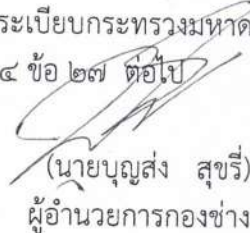 ระเบียบกระทรวงมหาด
๔ ข้อ ๒๗ ต่อไป
(นายบุญส่ง สุขรี่)
ผู้อำนวยการกองช่าง